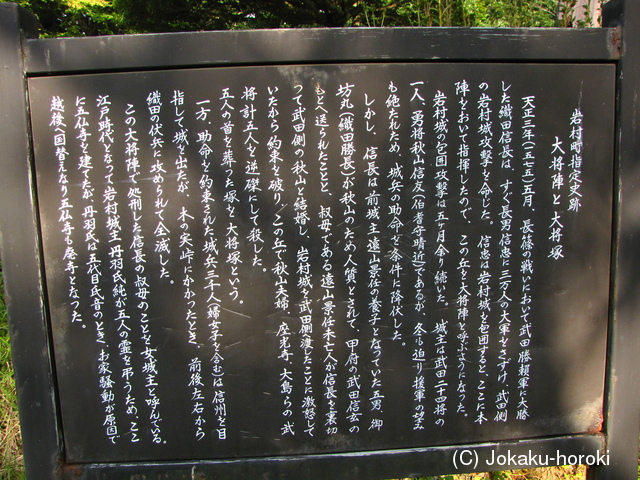 岩村町指定史跡
大将陣と大将塚
天正三年(一五七五)五月、長篠の戦いにおいて武田勝頼軍に大勝
した織田信長は、すぐ長男信忠に三万人の大軍をさずけ、武田側
の岩村城攻撃を命じた。信忠は岩村城を包囲すると、ここに本
陣をおいて指揮したので、この丘を大将陣と呼ぶようになった。
岩村城の包囲攻撃は五ヶ月余り続いた。城主は武田二十四将の
一人、勇将秋山信友(伯耆守晴近)であるが、冬も迫り援軍の望み
も絶たれたため、城兵の助命を条件に降伏した。
しかし、信長は前城主遠山景任の養子となっていた五男、御
坊丸(織田勝長)が秋山のため人質とされて、甲府の武田信玄の
もとへ送られたことと、叔母である遠山景任未亡人が信長を裏切
って武田側の秋山と結婚し、岩村城を武田側に渡したことに激怒して
いたから約束を破り、この丘で秋山夫婦、座光寺、大島らの武
将計五人を逆磔にして殺した。
五人の首を葬った塚を大将塚という。
一方、助命を約束された城兵三千人(婦女子を含む)は信州を目
指して城を出たが、木の実峠にかかったとき、前後左右から
織田の伏兵に攻められて全滅した。
この大将陣で処刑した信長の叔母のことを女城主と呼んでいる。
江戸時代になって岩村城主丹羽氏純が五人の霊を弔うため、ここ
に五仏寺を建てたが、丹羽氏は五代目氏音のとき、お家騒動が原因で
越後へ国替えとなり五仏寺も廃寺となった。
(C) Jokaku-horoki